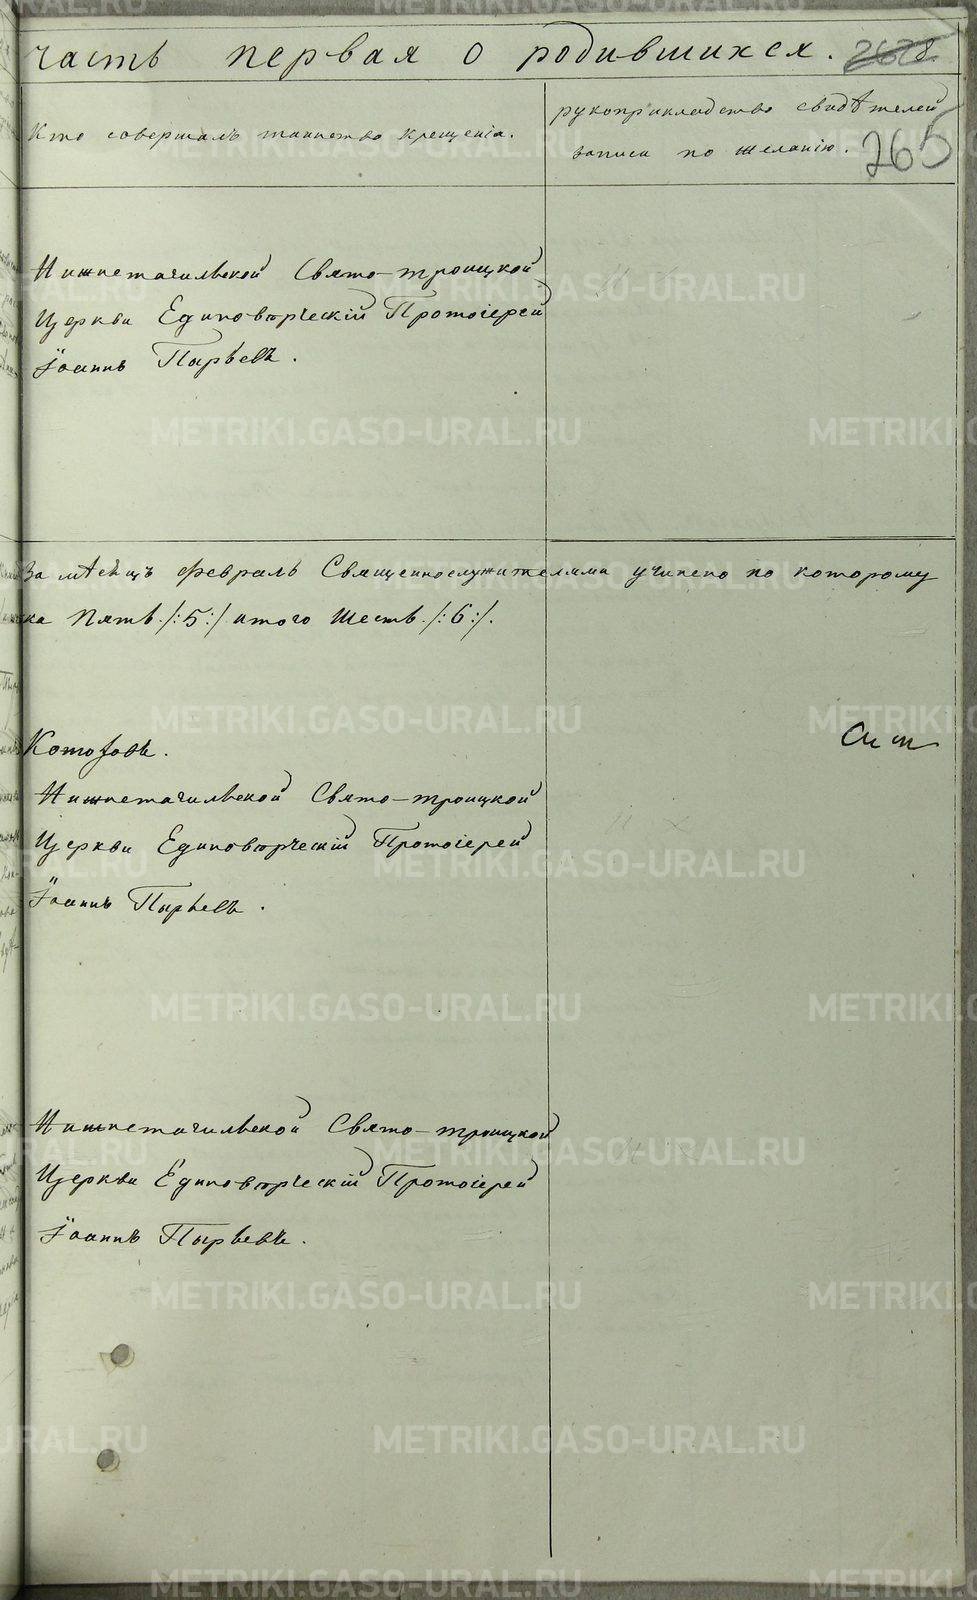 часть первая о родившихся.
265
Кто совершалъ таинство крещенія.
рукоприкладство свидѣтелей
записи по желанію.
Нижнетагильской Свято-троицкой
Церкви Единовѣрческій Протоіерей
Іоаннъ Пырьевъ.
За мѣсяцъ февраль Священнослужителями учинено по которому
ка Пять /:5:/ итого Шесть /:6:/.
Нижнетагильской Свято-троицкой
Церкви Единовѣрческій Протоіерей
Іоаннъ Пырьевъ.
Нижнетагильской Свято-троицкой
Церкви Единовѣрческій Протоіерей
Іоаннъ Пырьевъ.
METRIKI.GASO-URAL.RU